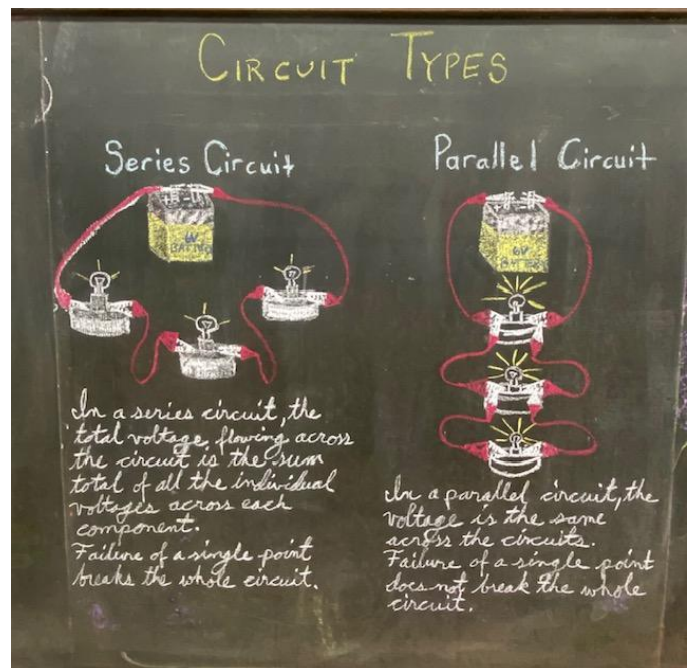 CIRCUIT TYPES
Series Circuit
6V
BATTERY
In a series circuit, the
total voltage flowing across
the circuit is the sum
total of all the individual
voltages across each
component.
Failure of a single point
breaks the whole circuit.
Parallel Circuit
6V
BATTERY
In a parallel circuit, the
voltage is the same
across the circuits.
Failure of a single point
does not break the whole
circuit.